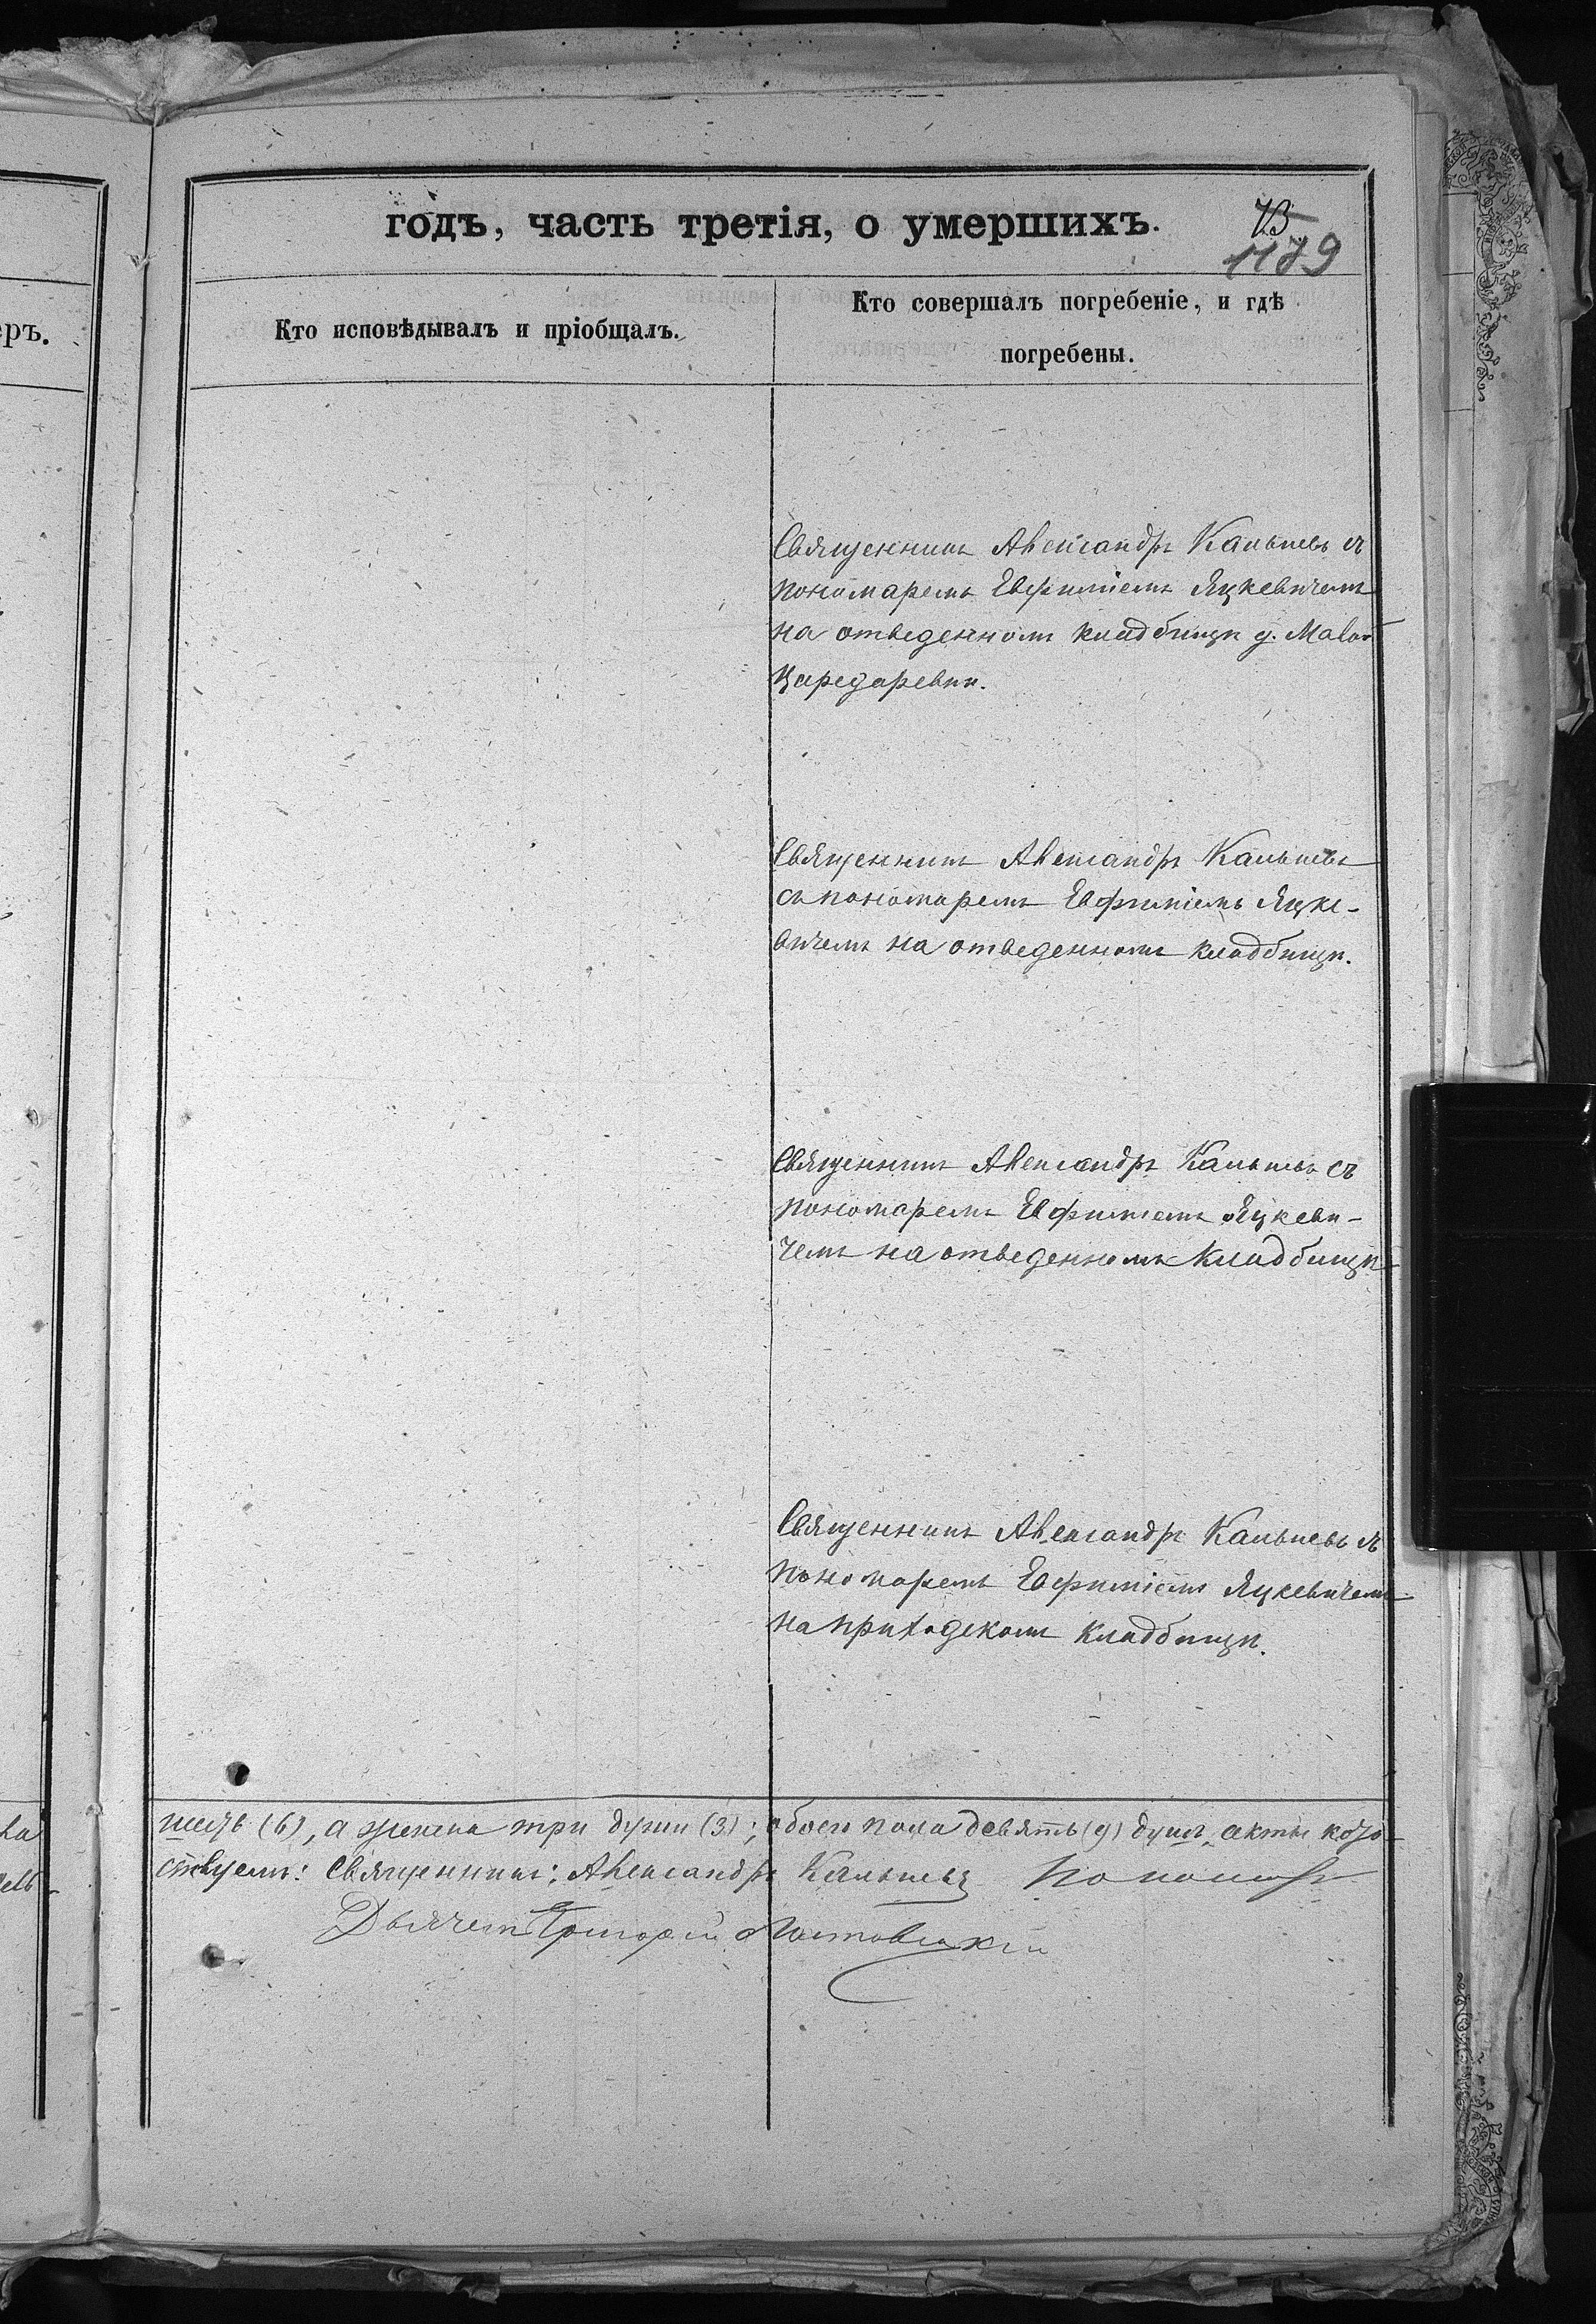 годъ, часть третія, о умершихъ.
1179
еръ.
Кто исповѣдывалъ и пріобщалъ.
Кто совершалъ погребеніе, и гдѣ
погребены.
Священникъ Александръ Кальневъ съ
пономаремъ Евфиміемъ Яцкевичемъ
на отведенномъ кладбищи д. Малой
Священникъ Александръ Кальневъ
съ пономаремъ Евфиміемъ Яцке-
вичемъ на отведенномъ кладбищи.
Священникъ Александръ Кальневъ съ
пономаремъ Евфиміемъ Яцкеви-
чемъ на отведенномъ кладбищи
Священникъ Александръ Кальневъ съ
пономаремъ Евфиміемъ Яцкевичемъ
на приходскомъ кладбищи.
шесть (6), а женска три души (3); обоего пола девять (9) душъ,
Священникъ: Александръ Кальневъ
Дьячекъ Григорій